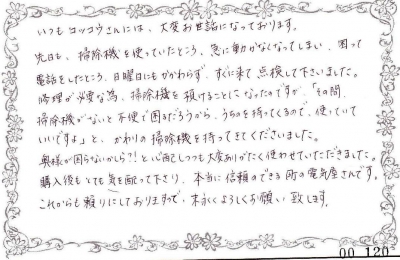 いつもヨッコウさんには、大変お世話になっております。
先日も、掃除機を使っていたところ、急に動かなくなってしまい、困って
電話をしたところ、日曜日にもかかわらず、すぐに来て点検して下さいました。
修理が必要な為、掃除機を預けることになったのですが、「その間、
掃除機がないと不便で困るだろうから、うちのを持ってくるので、使っていて
いいですよ」と、かわりの掃除機を持ってきてくださいました。
奥様が困らないかしら?!と心配しつつも大変ありがたく使わせていただきました。
購入後もとても気を配って下さり、本当に信頼のできる町の電気屋さんです。
これからも頼りにしておりますので、末永くよろしくお願い致します。
00 120